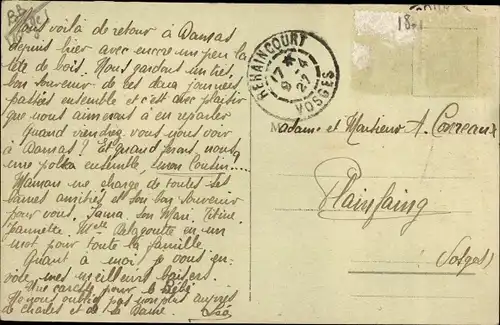 BB
Vosges
Nous voilà de retour à Damas
depuis hier avec encore un peu la
tête de bois. Nous gardons un très
bon souvenir de ces deux journées
passées ensemble et c'est avec plaisir
que nous aimerons à en reparler
Quand viendrez vous nous voir
à Damas? Et quand ferons nous
une polka ensemble, mon Cousin?...
Maman me charge de toutes ses
bonnes amitiés et son bon souvenir
pour vous, Son Mari, Titine
Jeannette, Melle Delagoutte en un
mot pour toute la famille
Quant à moi je vous en-
voie mes meilleurs baisers.
Une caresse pour le Bébé
Ne nous oubliez pas non plus auprès
de Charles et de la Dame.
REHAINCOURT
17 *
9 - 4
27
VOSGES
18-1
Madame et Monsieur A. Correaux
Plainfaing
(Vosges)